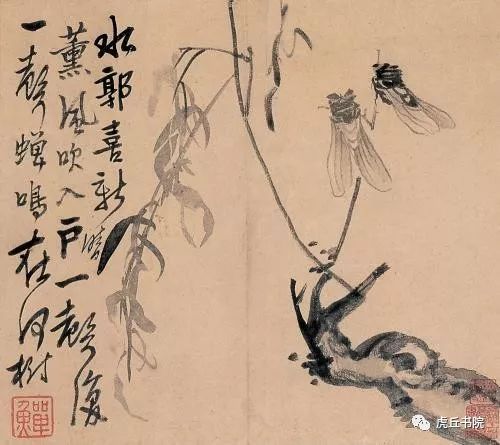 水郭喜新晴
薰風吹入戶一聲復
一聲蟬鳴在何樹
虎丘书院